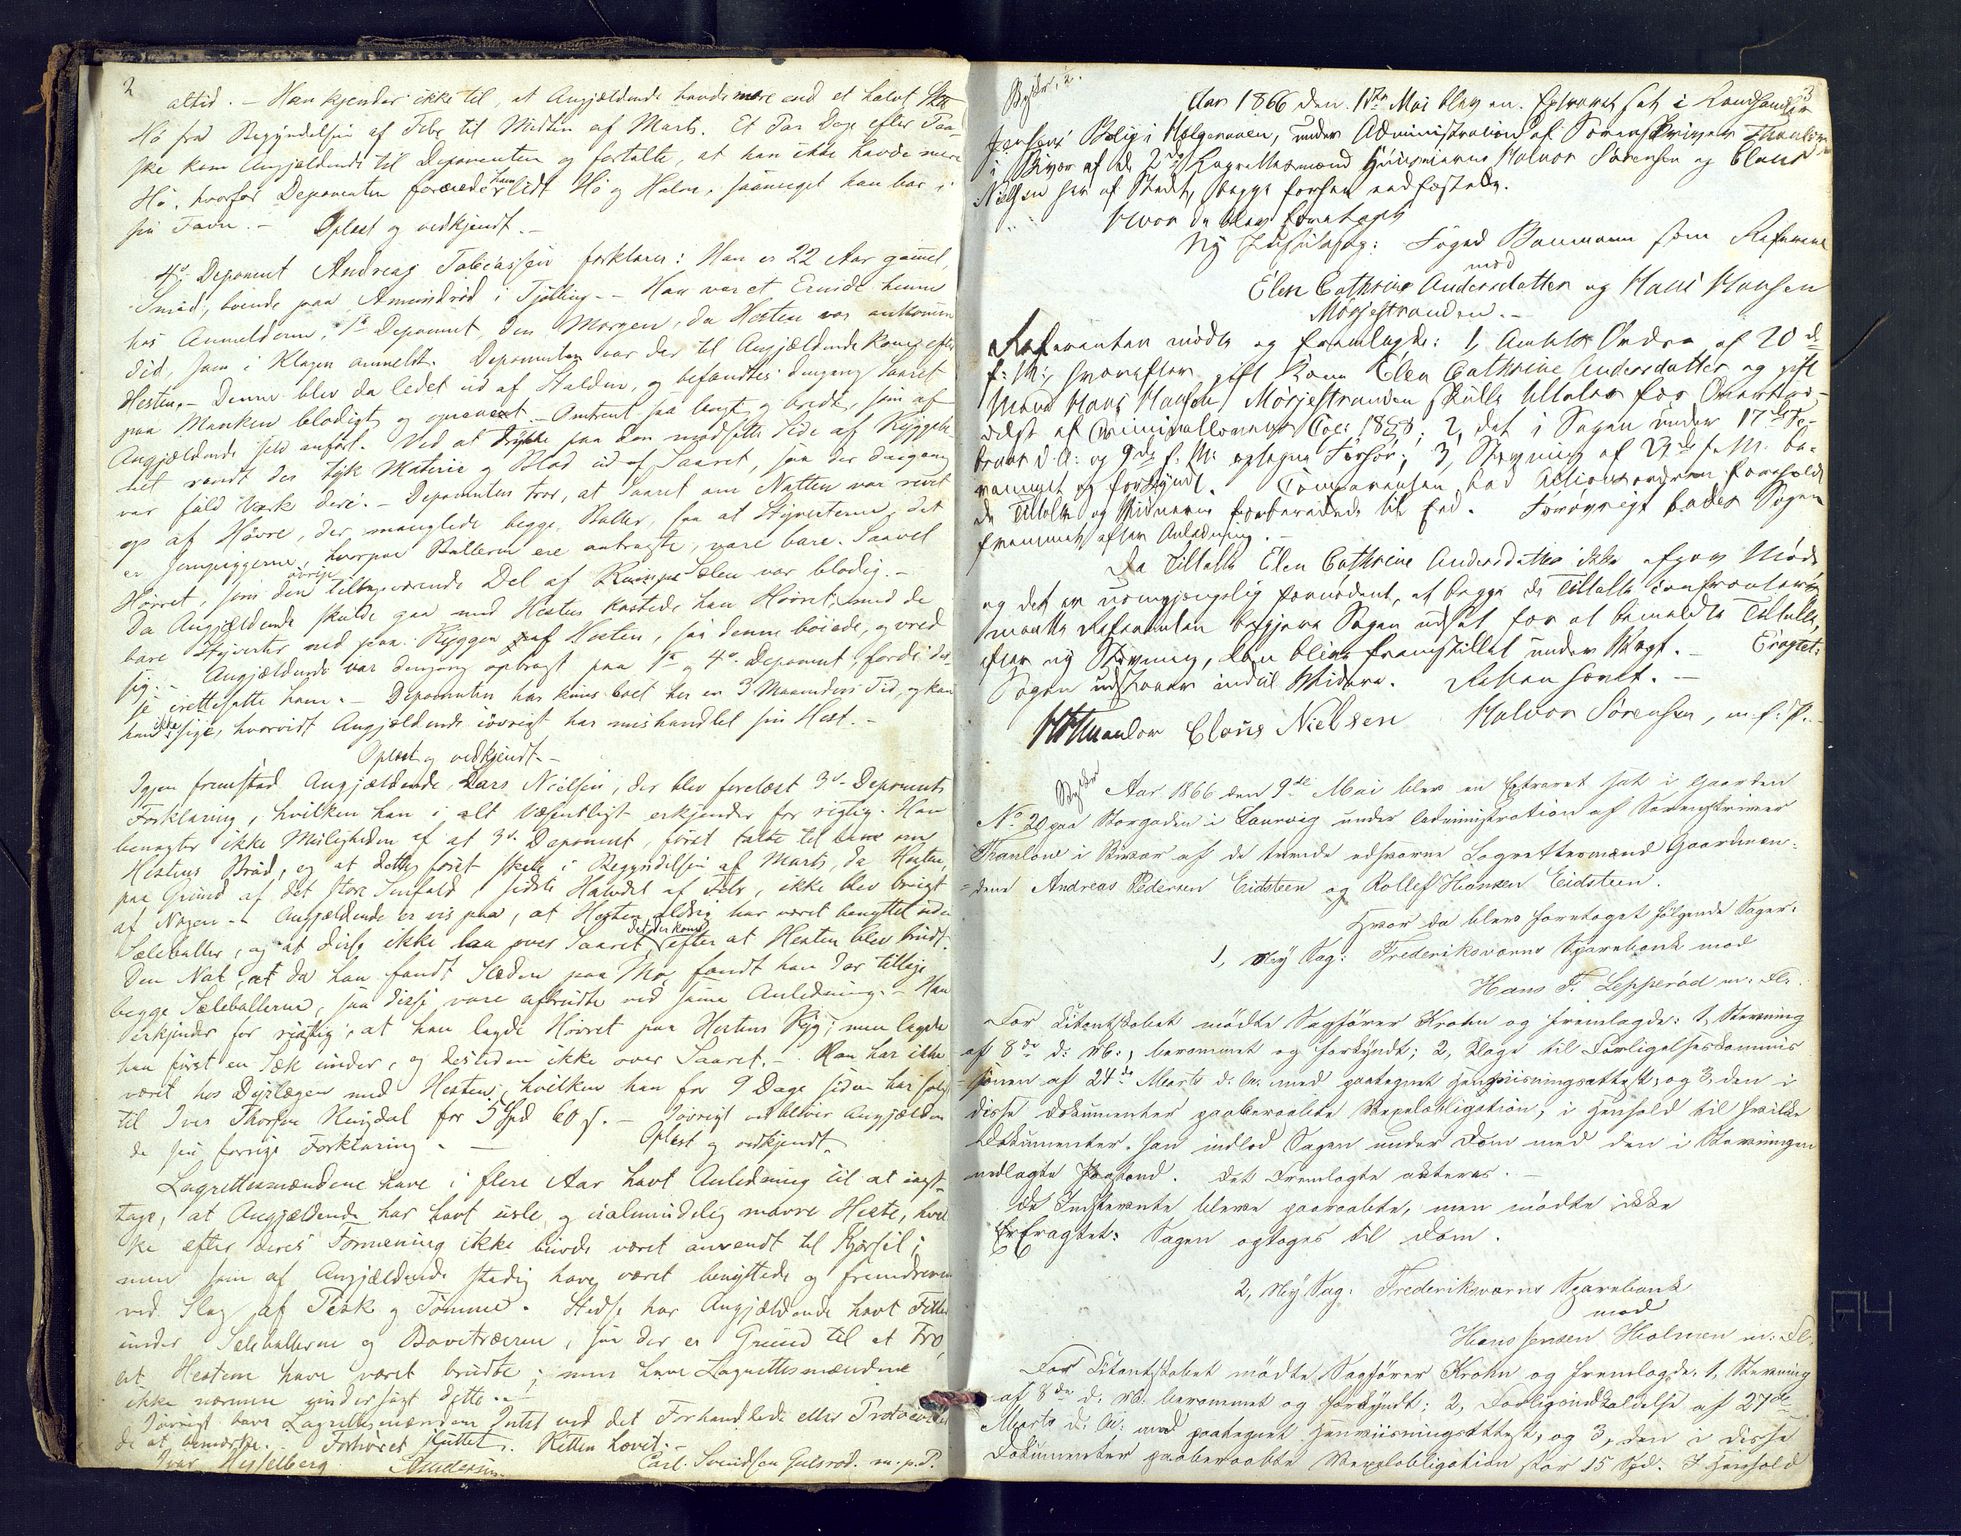 2
altid. – Han kjender ikke til, at Angjældende havde mere end et halvt Skp
Hø fra Begyndelsen af Febr til Midten af Marts. Et Par Dage efter Paa-
ske kom Angjældende til Deponenten og fortalte, at han ikke havde mere
Hø, hvorfor Deponenten forærede ham lidt Hø og Halm, saameget han bar i
sin Favn. – Oplæst og vedkjendt. –
4de Deponent Andreas Tobiassen forklarer: Han er 22 Aar gammel,
Smed, boende paa Amundrød i Tjølling. – Han var et Ærinde henne
hos Anmelderen, 1ste Deponent, den Morgen, da Hesten var ankommen
did, som i Klagen anmeldt. Deponenten var der til Angjældende kom efter
Hesten. – Denne blev da ledet ud af Stalden, og befandtes dengang Saaret
paa Manken blodigt og – Omtrent saa langt og bredt, som af
Angjældende selv anført. Ved at trykke paa den modsatte Side af Ryggen
randt der tyk Materie og Blod ud af Saaret, saa der dengang
var fuld Værk deri. – Deponenten tror, at Saaret om Natten var revet
op af Høvre, der manglede begge Baller, saa at Styverterne, det
er Jernpiggerne, hvorpaa Ballerne ere anbragte, vare bare. Saavel
Høvret, som den øvrige tilbageværende Del af Sælen var blodig. –
Da Angjældende skulde gaa med Hesten kastede han Høvret med de
bare Styverter ned paa Ryggen af Hesten, saa denne bøiede og vred
sig. – Angjældende var dengang opbragt paa 1ste og 4de Deponent, fordi de
irettesatte ham. – Deponenten har kuns boet her en 3 Maaneders Tid, og kan
han ikke sige, hvorvidt Angjældende iøvrigt har mishandlet sin Hest. –
Oplæst og vedkjendt. –
Igjen fremstod Angjældende, Lars Nielsen, der blev forelæst 3de Deponents
Forklaring, hvilken han i alt Væsentligt erkjender for rigtig. Han
benægter ikke Muligheden af at 3de Deponent, først talte til ham om
Hestens Brød, og at dette først skete i Begyndelsen af Marts, da Hesten,
paa Grund af det store Snefald i sidste Halvdel af Febr, ikke blev brugt
af Nogen. – Angjældende er vis paa, at Hesten aldrig har været benyttet uden
Sæleballer, og at disse ikke laa over Saaret, det der kom efter at Hesten blev brudt.
Den Nat, at da han fandt Sæden paa Mo, fandt han der tillige
begge Sæleballerne, saa disse vare afbrudte ved samme Anledning. – Han
erkjender for rigtig, at han lagde Høvret paa Hestens Ryg; men lagde
han først en Sæk under, og desuden ikke over Saaret. – Han har ikke
været hos Dyrlægen med Hesten, hvilken han for 9 Dage siden har solgt
til Iver Thorsen Hengdal for 5 Spd 60 s. – Iøvrigt vedbliver Angjælden-
de sin forrige Forklaring. – Oplæst og vedkjendt.
Lagrettesmændene have i flere Aar havt Anledning til at iagt-
tage, at Angjældende har havt usle og ualmindelig magre Heste, hvil-
ke efter deres Formening ikke burde været anvendt til Kjørsel;
men som af Angjældende stadig have været benyttede og fremdreven
ved Slag af Pisk og Tømme. Stedse har Angjældende havt Filler
under Sæleballerne og Bovetræerne, saa der er Grund til at tro,
at Hestene have været brudte; men have Lagrettesmændene
ikke nærmere undersøgt dette. –
Iøvrigt have Lagrettesmændene Intet ved det Forhandlede eller Protocol
de at bemærke. – Forhøret sluttet. Retten hævet. –
Iver Hesselberg Andersen Carl Svendsen Gulsrod. m. p. P.
3
Aar 1866 den 1ste Mai blev en Extraret sat i Landhandler
Jensens Bolig i Helgeroaen, under Administration af Sorenskriver Thaulow
i Bivær af de 2de Lagrettesmænd Huusmænd Halvor Sørensen og Claus
Nielsen her af Stedet, begge forhen edfæstede.
Hvor da blev foretaget
Ny Justitssag: Foged Baumann som Referent
mod
Elen Cathrine Andersdatter og Hans Hansen
Mørjestranden. –
Referenten mødte og fremlagde: 1, Amtets Ordre af 20de
f: M:, hvorefter gift Kone Elen Cathrine Andersdatter og gift
Mand Hans Hansen Mørjestranden skulle tiltales for Overtræ-
delse af Criminallovens Cap: 18 § 8; 2, det i Sagen under 17de Fe-
bruar d. A: og 9de f. M: optagne Forhør; 3, Stevning af 23de f. M. be-
rammet og forkyndt. Comparenten bad Actionsordren foreholdt
de Tiltalte og Vidnerne forberedede til Ed. Forøvrigt lades Sagen
fremmet efter Anledning. –
Da Tiltalte Elen Cathrine Andersdatter ikke afgav Møde
og det er uomgjængelig fornødent, at begge de Tiltalte confronteres
maatte Referenten begjere Sagen udsat for at bemeldte Tiltalte,
efter ny Stevning, kan blive fremstillet under Vagt. – Eragtet:
Sagen udstaaer indtil Videre. Retten hævet. –
HThaulow Claus Nielsen Halvor Sørensen, m. f. P. –
Aar 1866 den 9de Mai blev en Extraret sat i Gaarden
No 20 paa Storgaden i Laurvig under Administration af Sorenskriver
Thaulow i Bivær af de tvende edsvorne Lagrettesmænd Gaardmæn-
dene Andreas Pedersen Eidsteen og Rollef Hansen Eidsteen.
Hvor da blev foretaget følgende Sager:
1, Ny Sag: Frederiksværns Sparebank mod
Hans F. Lepperød m. Fl.
For Citantskabet mødte Sagfører Krohn og fremlagde: 1, Stevning
af 8de d: M:, berammet og forkyndt; 2, Klage til Forligelseskommis-
sionen af 24de Marts d: A: med paategnet Henviisningsattest, og 3, den i
disse Dokumenter paaberaabte Vexelobligation, i Henhold til hvilke
Dokumenter han indlod Sagen under Dom med den i Stevningen
nedlagte Paastand. Det Fremlagte akteres. –
De Indstevnte bleve paaraabte, men mødte ikke
Eragtet: Sagen optoges til Dom.
2, Ny Sag: Frederiksværns Sparebank
mod
Hans Jensen Holmen m. Fl.
For Citantskabet mødte Sagfører Krohn og fremlagde: 1, Stevning
af 8de d: M: berammet og forkyndt; 2, Forligsindkaldelse af 27de
Marts d: A: med paategnet Henviisningsattest, og 3, den i disse
Dokumenter paaberaabte Vexelobligation stor 15 Spd. I Henhold